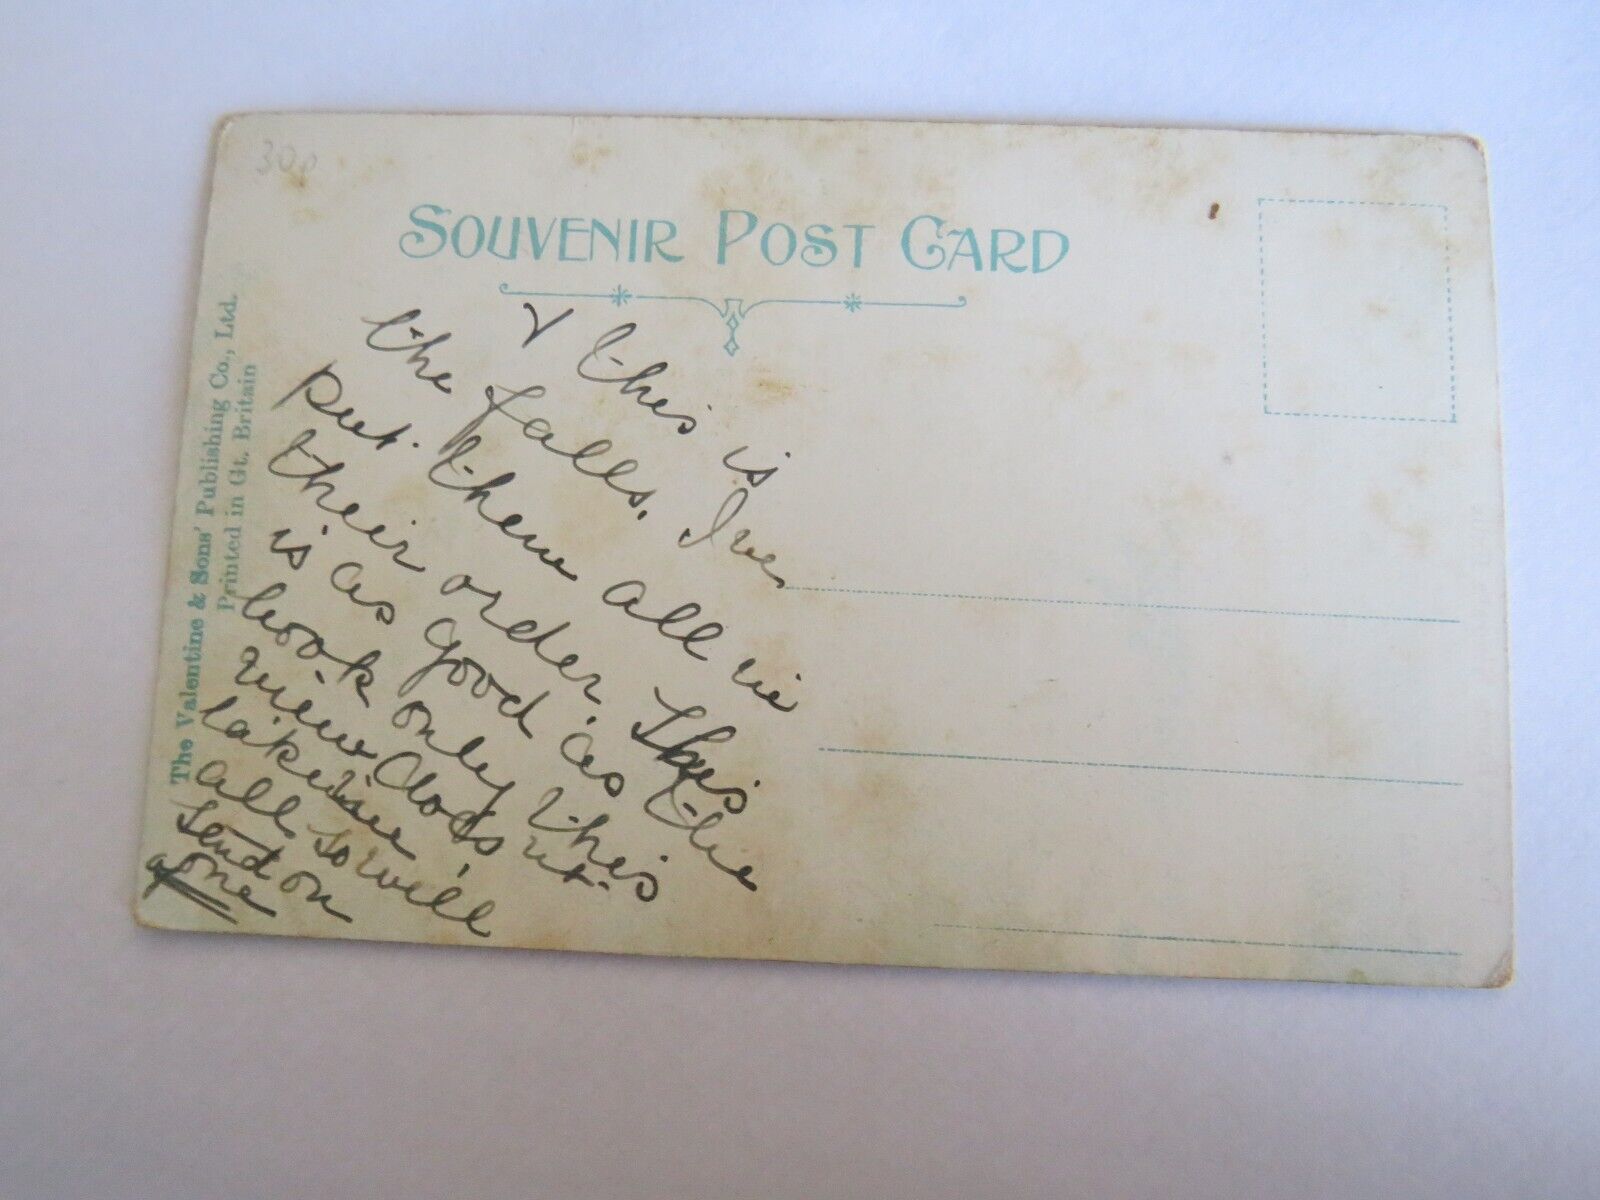 300
SOUVENIR POST CARD
The Valentine & Sons' Publishing Co., Ltd.
Printed in Gt. Britain
& this is
the falls. Ive
put them all in
their order. This
is as good as the
book only this
view does nt
take in
all so will
send on
one